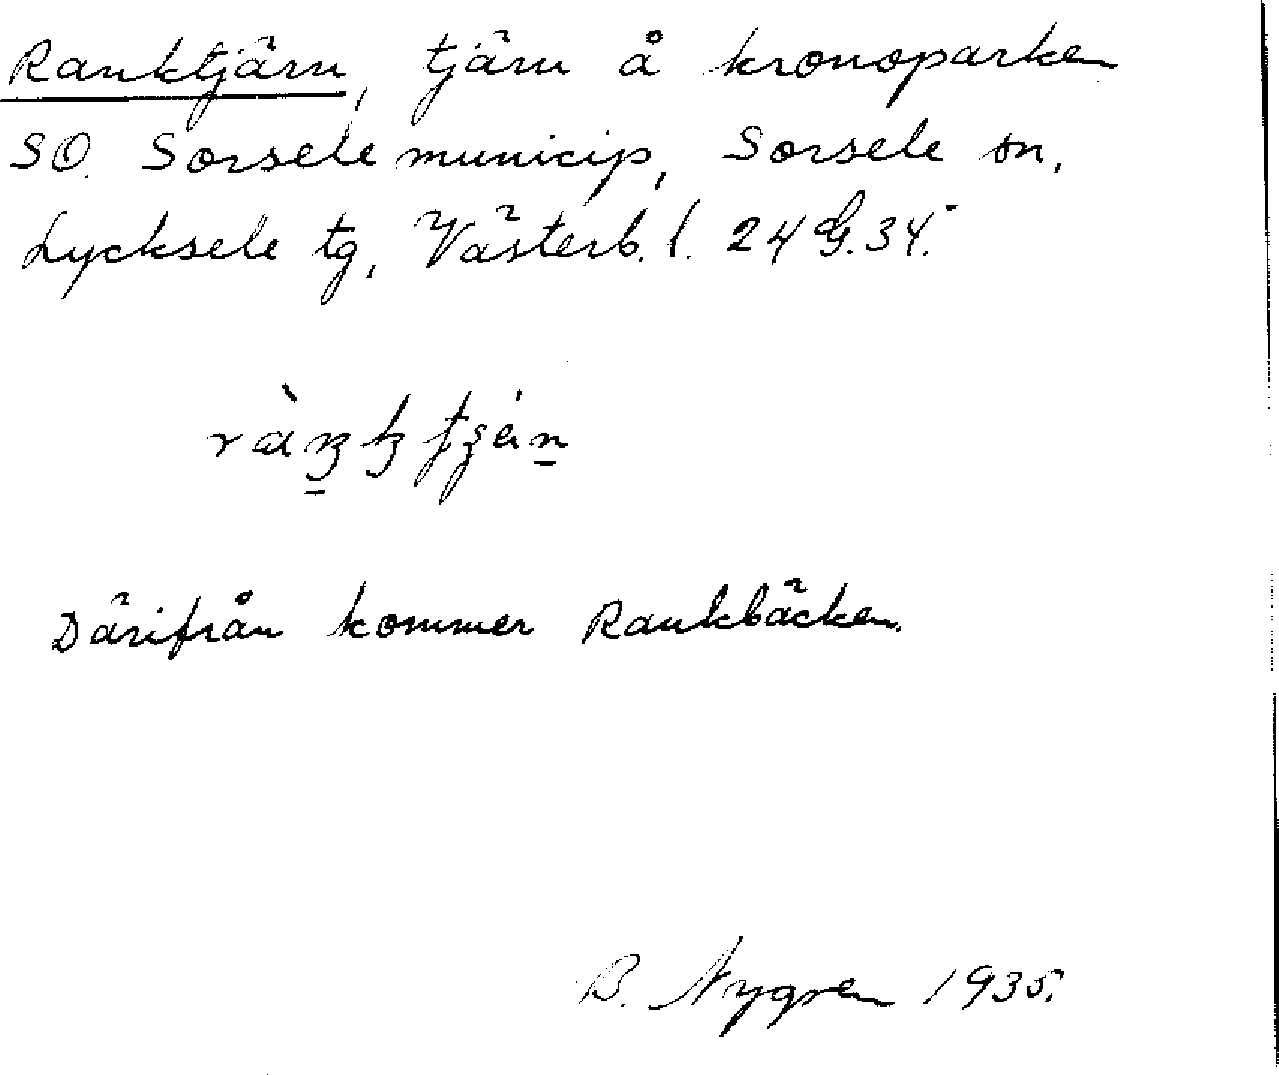 Ranktjärn, tjärn å kronoparken
SO. Sorsele municip, Sorsele sn,
Lycksele tg, Västerb. l. 24 G. 34.
Därifrån kommer Rankbäcken.
B. Nygren 1935.